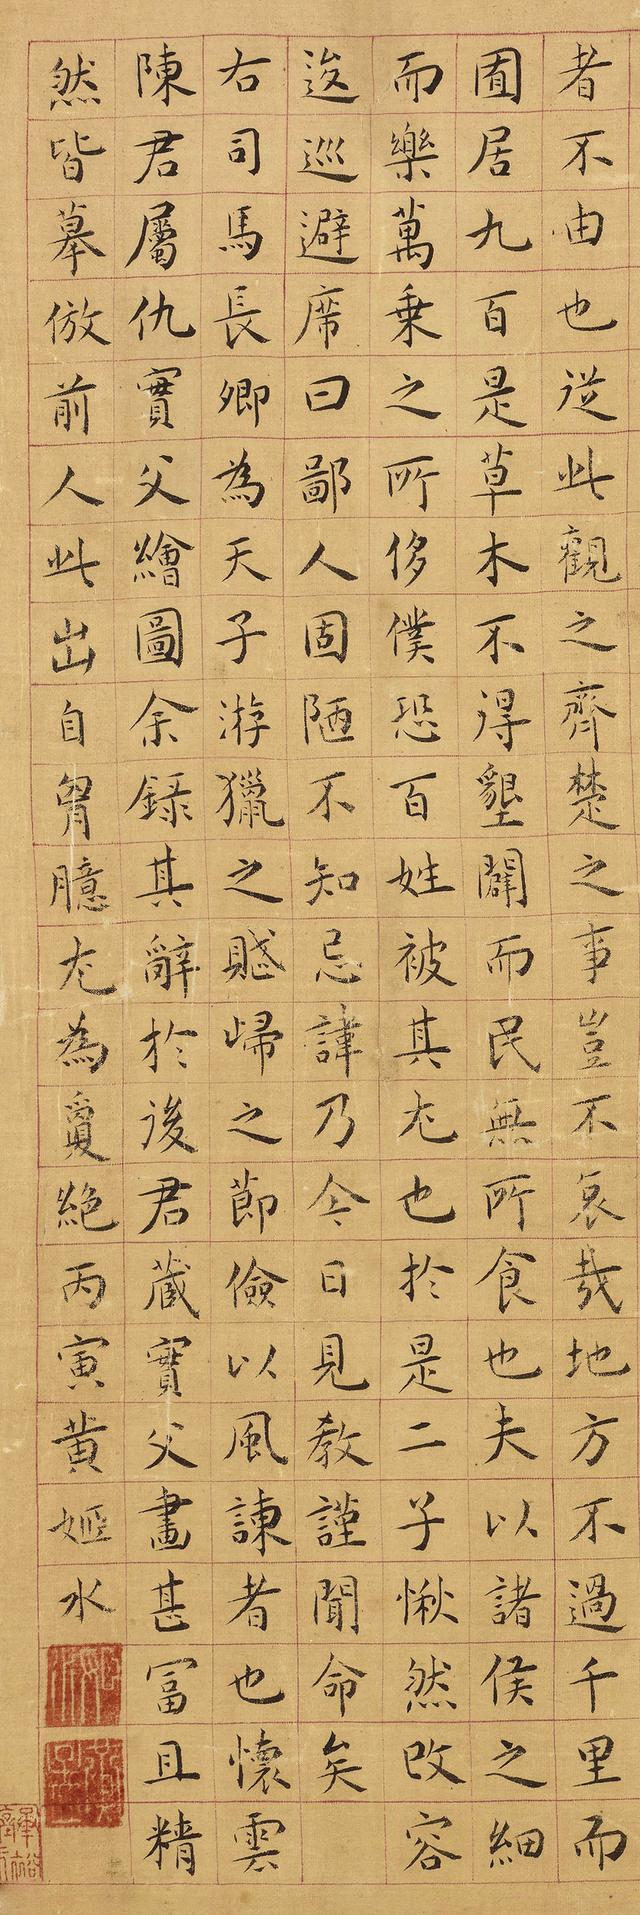 者不由也從此觀之齊楚之事豈不哀哉地方不過千里而
囿居九百是草木不得墾闢而民無所食也夫以諸侯之細
而樂萬乗之所侈僕恐百姓被其尤也於是二子愀然改容
逡巡避席曰鄙人固陋不知忌諱乃今日見教謹聞命矣
右司馬長卿為天子游獵之賦歸之節儉以風諫者也懷雲
陳君屬仇實父繪圖余錄其辭於後君藏實父畫甚冨且精
然皆摹倣前人此出自胷臆尤為敻絶丙寅黄姬水